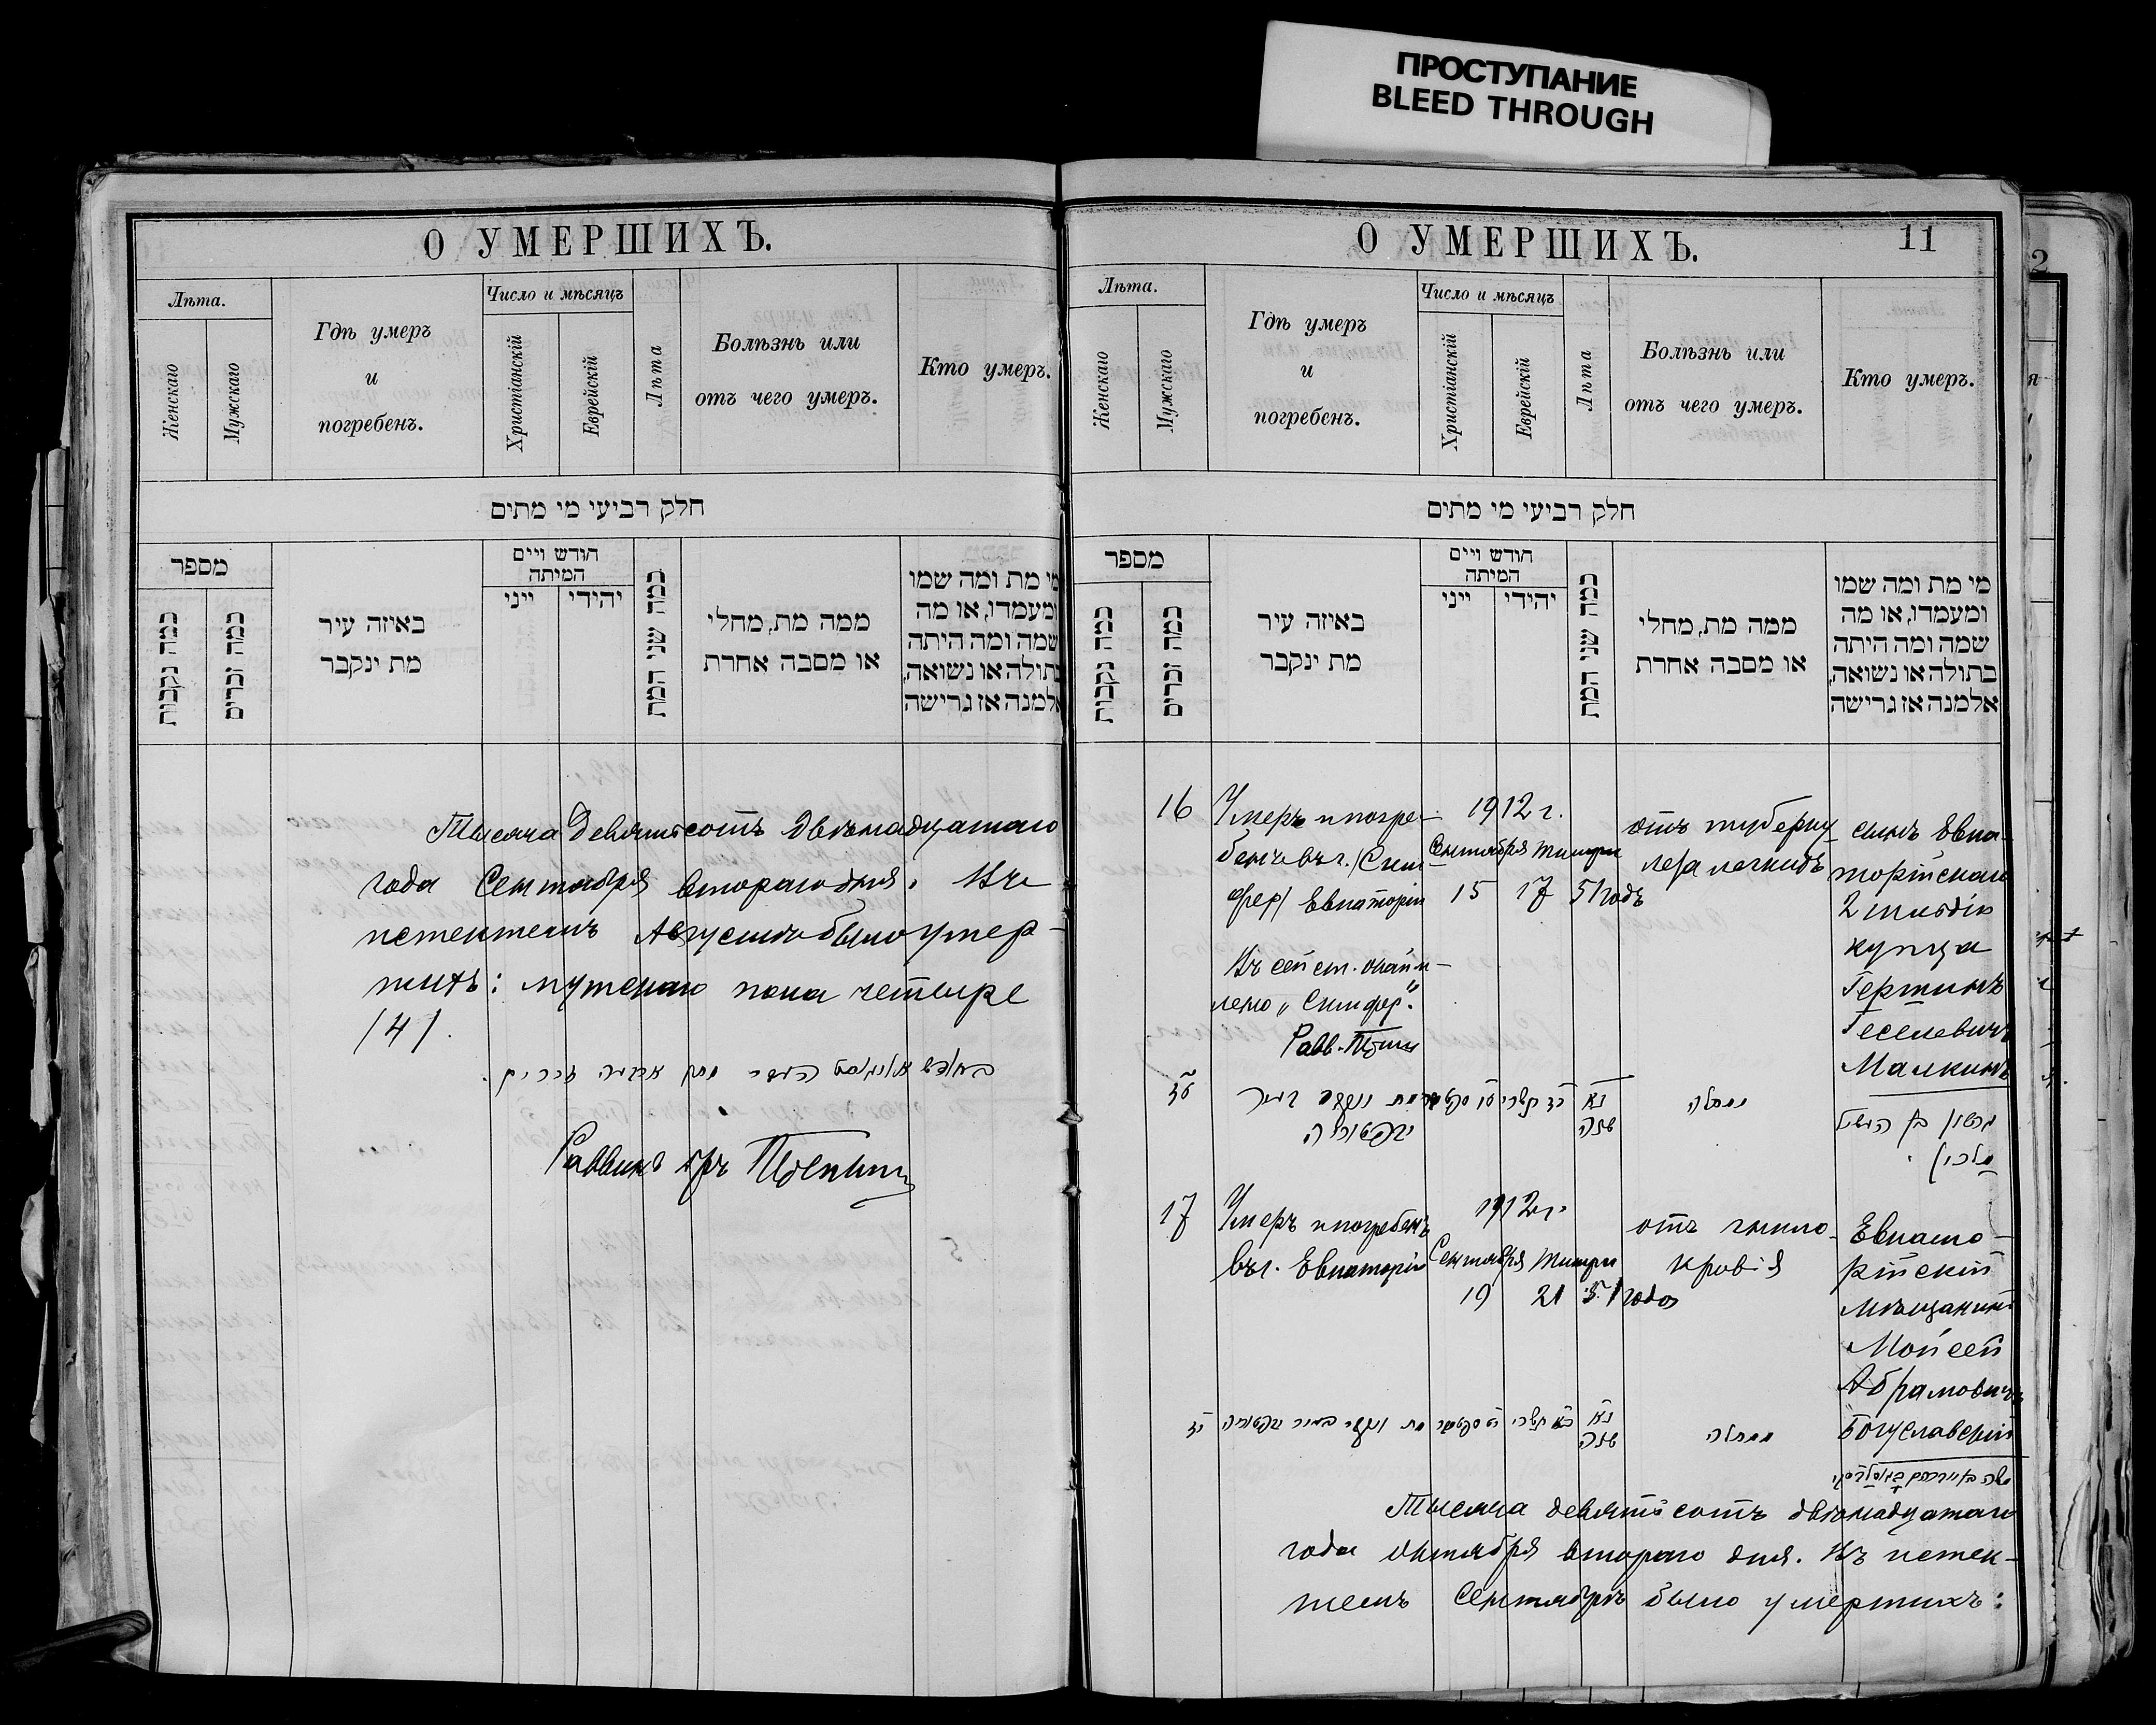 ПРОСТУПАНИЕ
BLEED THROUGH
О УМЕРШИХЪ.
Лѣта.
Женскаго
Мужскаго
Гдѣ умеръ
и
погребенъ.
Число и мѣсяцъ
Христіанскій
Еврейскій
Лѣта
Болѣзнь или
отъ чего умеръ.
Кто умеръ.
חלק רביעי מי מתים
מספר
כמה נקבות
כמה זכרים
באיזה עיר
מת ינקבר
חודש ויים
המיתה
ייני
יהידי
כמה שני המת
ממה מת, מחלי
או מסבה אחרת
מי מת ומה שמו
ומעמדו, או מה
שמה ומה היתה
בתולה או נשואה,
אלמנה אז גרישה
Тысяча девятьсотъ двѣнадцатаго
года Сентября второго дня. Въ
истекшемъ Августѣ было умер-
шихъ: мужскаго пола четыре
/4/.
Раввинъ
О УМЕРШИХЪ.
11
2
Лѣта.
Женскаго
Мужскаго
Гдѣ умеръ
и
погребенъ.
Число и мѣсяцъ
Христіанскій
Еврейскій
Лѣта
Болѣзнь или
отъ чего умеръ.
Кто умеръ.
חלק רביעי מי מתים
מספר
כמה נקבות
כמה זכרים
באיזה עיר
מת ינקבר
חודש ויים
המיתה
ייני
יהידי
כמה שני המת
ממה מת, מחלי
או מסבה אחרת
מי מת ומה שמו
ומעמדו, או מה
שמה ומה היתה
בתולה או נשואה,
אלמנה אז גרישה
16
Умеръ и погре-
бенъ въ г. /Сим-
фер/ Евпаторіи
Въ сей ст.
лено „Симфер."
Рабб.
1912 г.
Сентября Тишри
15 17 51 годъ
отъ туберку-
леза легкихъ
сынъ Евпа-
торійскаго
2 гильдіи
купца
Гершинъ
Геселевичъ
Малкинъ
טז
נא
שנה
מחלה
גרשון בן
מלכין
17
Умеръ и погребенъ
въ г. Евпаторіи
1912 г.
Сентября Тишри
19 21 51 года
отъ гнило-
кровія
Евпато-
рійскій
мѣщанинъ
Мойсей
Абрамовичъ
Богуславскій
יז
מת
נא
שנה
מחלה
Тысяча девятьсотъ двѣнадцатаго
года октября второго дня. Въ истек-
шемъ Сентябрѣ было умершихъ: